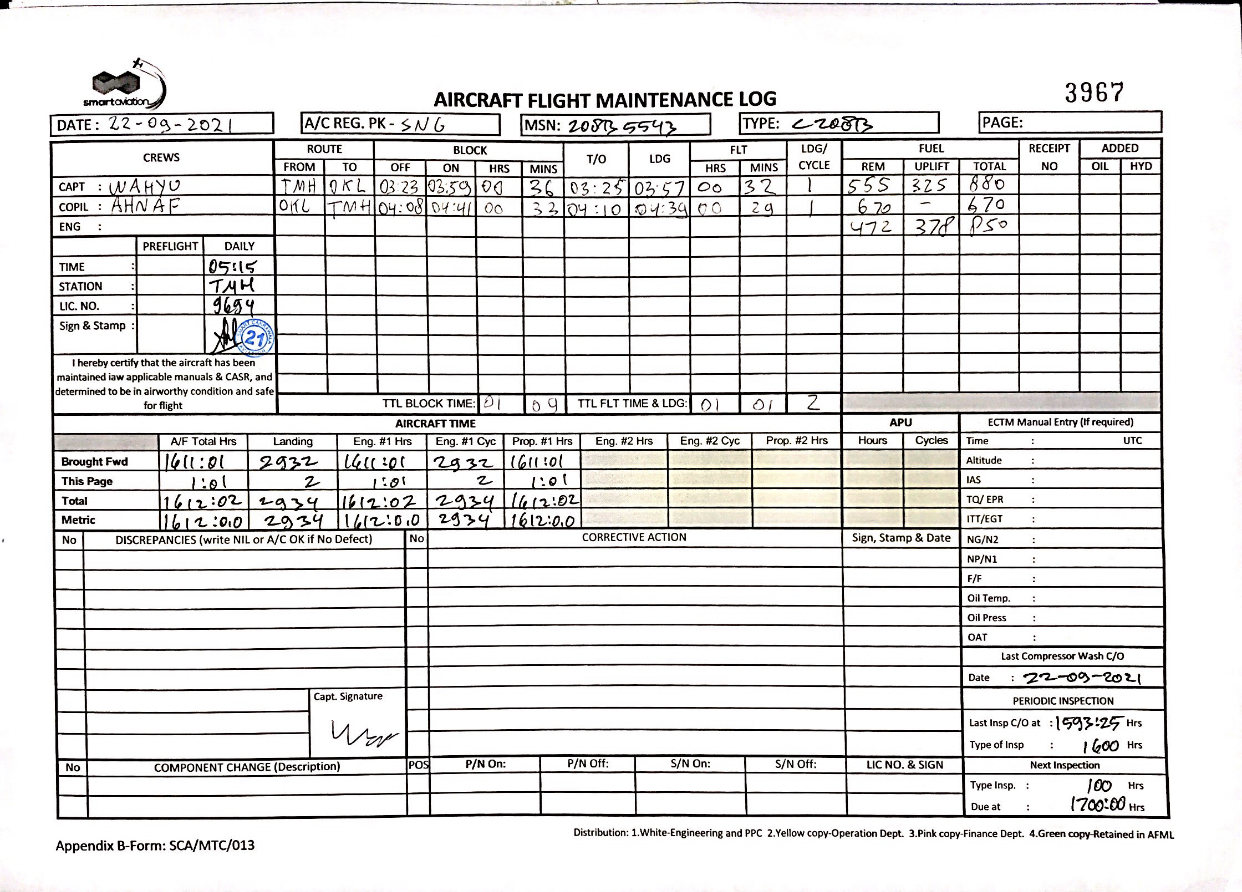 smartaviation
AIRCRAFT FLIGHT MAINTENANCE LOG
3967
DATE: 22-09-2021 A/C REG. PK - SNG MSN: 208B 5543 TYPE: C-208B PAGE:
CREWS ROUTE BLOCK T/O LDG FLT LDG/ CYCLE FUEL RECEIPT NO ADDED
FROM TO OFF ON HRS MINS HRS MINS REM UPLIFT TOTAL OIL HYD
CAPT : WAHYU TMH OKL 03:23 03:59 00 36 03:25 03:57 00 32 1 555 325 880
COPIL : AHNAF OKL TMH 04:08 04:41 00 33 04:10 04:39 00 29 1 670 - 670
ENG : 472 378 850
PREFLIGHT DAILY
TIME : 05:15
STATION : TMH
LIC. NO. : 9694
Sign & Stamp : 21
I hereby certify that the aircraft has been
maintained iaw applicable manuals & CASR, and
determined to be in airworthy condition and safe
for flight
TTL BLOCK TIME: 01 09 TTL FLT TIME & LDG: 01 01 2
AIRCRAFT TIME APU ECTM Manual Entry (If required)
A/F Total Hrs Landing Eng. #1 Hrs Eng. #1 Cyc Prop. #1 Hrs Eng. #2 Hrs Eng. #2 Cyc Prop. #2 Hrs Hours Cycles Time : UTC
Brought Fwd 1611:01 2932 1611:01 2932 1611:01 Altitude :
This Page 1:01 2 1:01 2 1:01 IAS :
Total 1612:02 2934 1612:02 2934 1612:02 TQ/ EPR :
Metric 1612:0.0 2934 1612:0.0 2934 1612:0.0 ITT/EGT :
No DISCREPANCIES (write NIL or A/C OK if No Defect) No CORRECTIVE ACTION Sign, Stamp & Date NG/N2 :
NP/N1 :
F/F :
Oil Temp. :
Oil Press :
OAT :
Last Compressor Wash C/O
Date : 22-09-2021
Capt. Signature
PERIODIC INSPECTION
Last Insp C/O at : 1593:25 Hrs
Type of Insp : 1600 Hrs
No COMPONENT CHANGE (Description) POS P/N On: P/N Off: S/N On: S/N Off: LIC NO. & SIGN Next Inspection
Type Insp. : 100 Hrs
Due at : 1700:00 Hrs
Distribution: 1.White-Engineering and PPC 2.Yellow copy-Operation Dept. 3.Pink copy-Finance Dept. 4.Green copy-Retained in AFML
Appendix B-Form: SCA/MTC/013